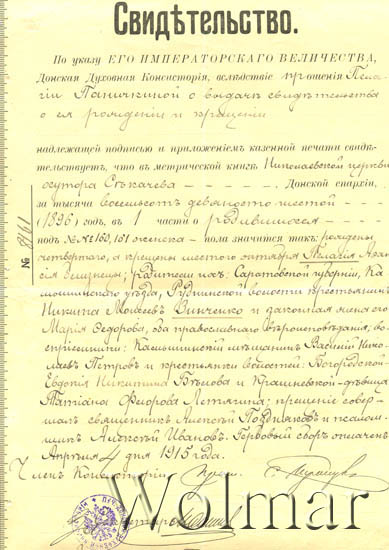 Свидѣтельство.
По указу ЕГО ИМПЕРАТОРСКАГО ВЕЛИЧЕСТВА,
Донская Духовная Консисторія, вслѣдствіе прошенія Пела-
гіи Паничкиной о выдачѣ свидѣтельства
о ея рожденіи и крещеніи
надлежащей подписью и приложеніемъ казенной печати свидѣ-
тельствуетъ, что въ метрической книгѣ Николаевской церкви
хутора Сѣкачева Донской епархіи,
за тысяча восемьсотъ девяносто шестой
(1896) годъ, въ 1 части о родившихся
подъ №№ 160, 161 женска пола значится такъ: рождены
четвертаго, а крещены шестого октября Пелагія
родители ихъ: Саратовской губерніи, Ка-
мышинскаго уѣзда, волости крестьянинъ
Никита Моисеевъ Динченко и законная жена его
Марія Ѳедорова, оба православнаго вѣроисповѣданія; во-
спріемники: Камышинскій мѣщанинъ Василій Нико-
лаевъ Петровъ и крестьянки волостей: Богородской
Евдокія Никитина и дѣвица
Татіана Ѳедорова крещеніе совер-
шалъ священникъ Алексѣй Поздняковъ и псалом-
щикъ Алексѣй Ивановъ. Гербовый сборъ оплаченъ
Апрѣля 4 дня 1915 года.
Членъ Консисторіи
Секретарь
№ 8161
Wolmar